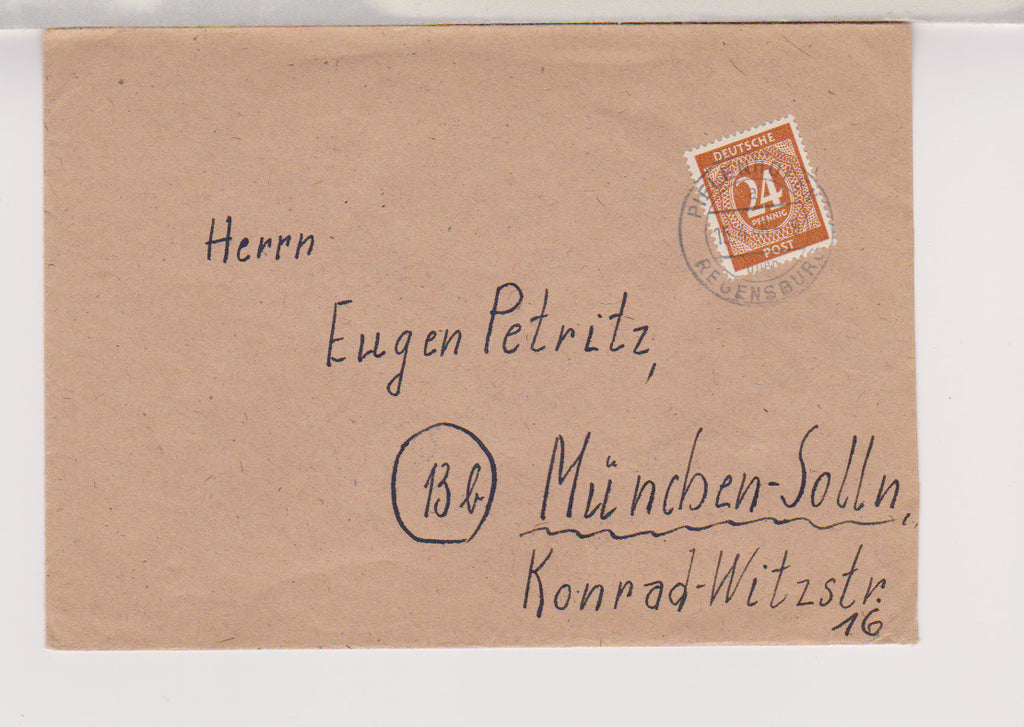 DEUTSCHE
24
PFENNIG
POST
REGENSBURG
Herrn
Eugen Petritz,
13b München-Solln,
Konrad-Witzstr.
16